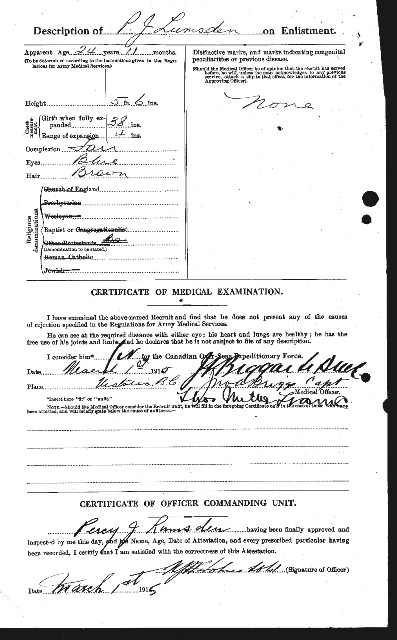 Description of P. J. Lumsden on Enlistment.
Apparent Age 24 years 11 months.
(To be determined according to the instructions given in the Regulations for Army Medical Services.)
Distinctive marks, and marks indicating congenital peculiarities or previous disease.
(Should the Medical Officer be of opinion that the recruit has served before, he will, unless the man acknowledges to any previous service, attach a slip to that effect, for the information of the Approving Officer.)
None
Height 5 ft. 6 ins.
Chest measurement
Girth when fully expanded 38 ins.
Range of expansion 4 ins.
Complexion Fair
Eyes Blue
Hair Brown
Religious denominations
Church of England
Presbyterian
Wesleyan
Baptist or Congregationalist
Other Protestants
(Denomination to be stated.)
Roman Catholic
Jewish
CERTIFICATE OF MEDICAL EXAMINATION.
I have examined the above-named Recruit and find that he does not present any of the causes
of rejection specified in the Regulations for Army Medical Services.
He can see at the required distance with either eye; his heart and lungs are healthy; he has the
free use of his joints and limbs, and he declares that he is not subject to fits of any description.
I consider him* fit for the Canadian Over-Seas Expeditionary Force.
Date March 1st 1915
Place Victoria B.C.
Capt
Medical Officer.
*Insert here "fit" or "unfit."
Note.—Should the Medical Officer consider the Recruit unfit, he will fill in the foregoing Certificate only in the case of those who have been attested, and will briefly state below the cause of unfitness:—
CERTIFICATE OF OFFICER COMMANDING UNIT.
Percy J Lumsden having been finally approved and
inspected by me this day, and his Name, Age, Date of Attestation, and every prescribed particular having
been recorded, I certify that I am satisfied with the correctness of this Attestation.
(Signature of Officer)
Date March 1st 1915